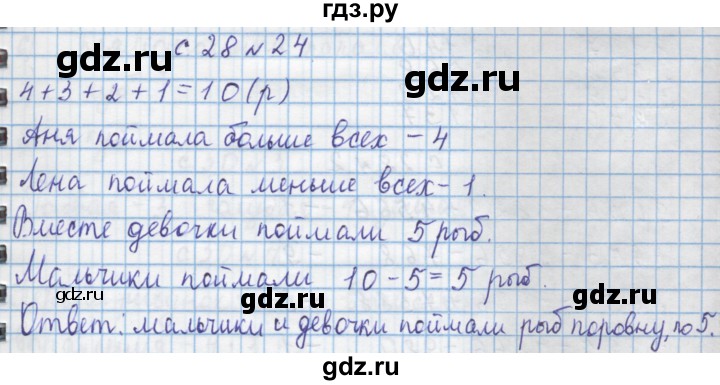 гдз.ру
с 28 № 24
gdz.ru gdz.ru
4+3+2+1=10(р)
Аня поймала больше всех - 4
gdz.ru gdz.ru
Лена поймала меньше всех - 1.
Вместе девочки поймали 5 рыб.
gdz.ru gdz.ru
Мальчики поймали 10-5=5 рыб.
gdz.ru gdz.ru gdz.ru
Ответ: мальчики и девочки поймали рыб поровну, по 5.
gdz.ru